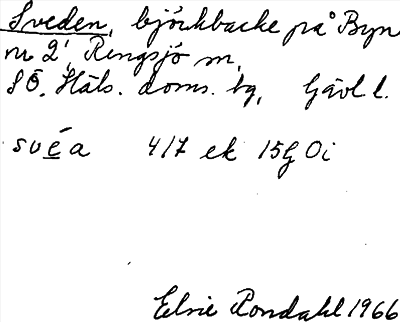 Sveden, björkbacke på Byn
nr 2, Rengsjö m,
SÖ. Häls. doms. bg, Gävl l.
svéa 4/7 ek 15G Oi
Elsie Rondahl 1966